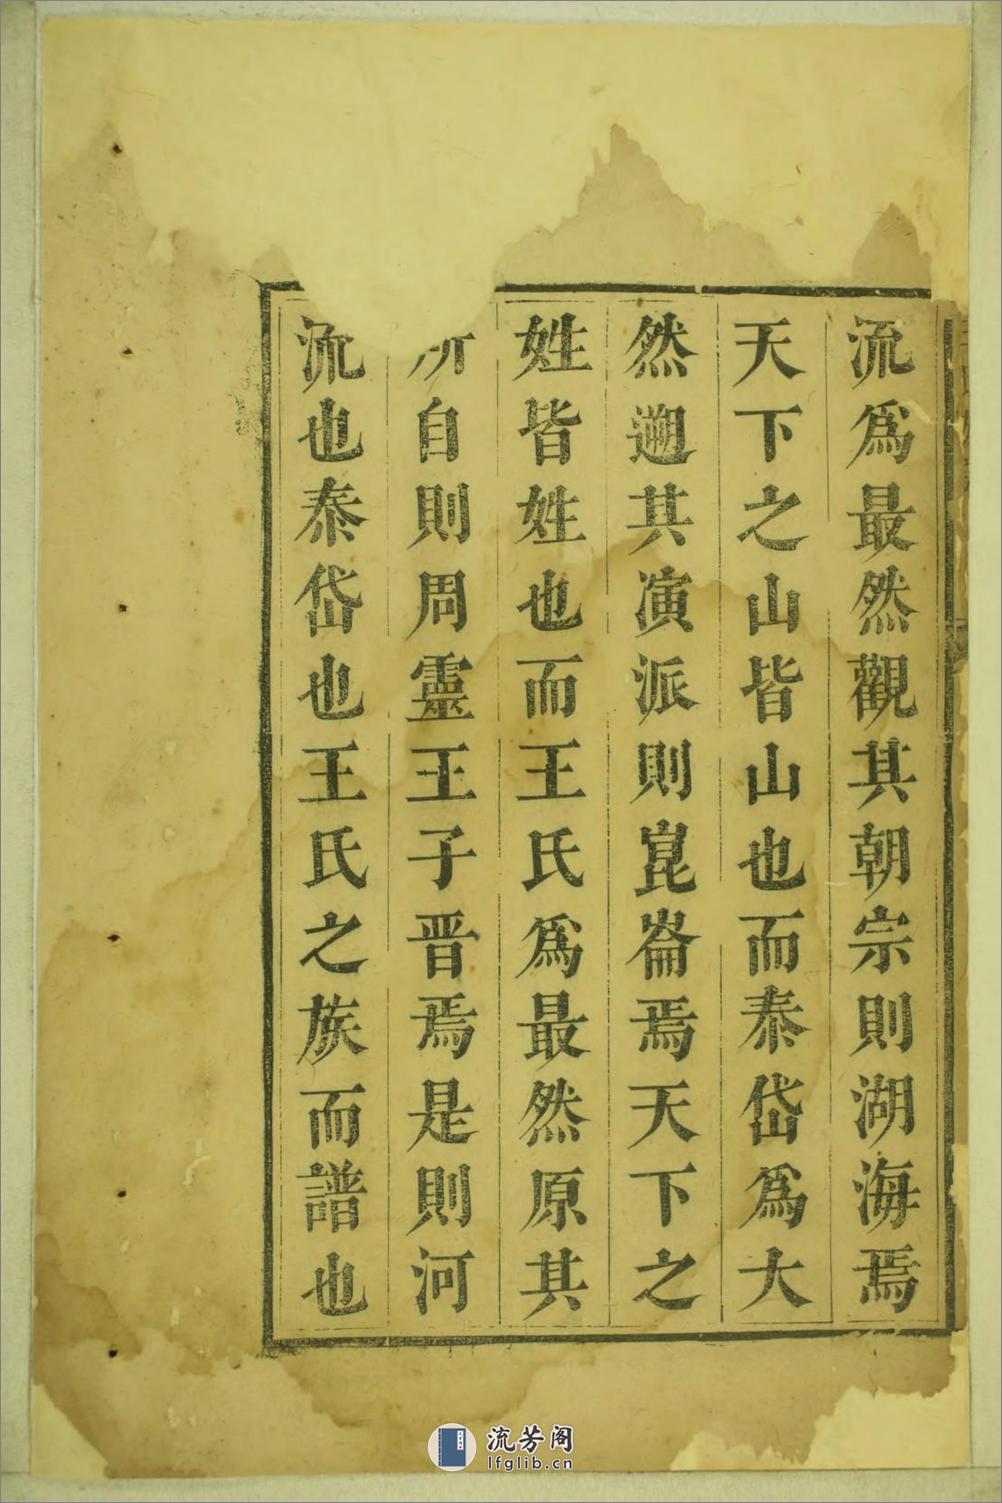 流為最然觀其朝宗則湖海焉
天下之山皆山也而泰岱為大
然遡其演派則崑崙焉天下之
姓皆姓也而王氏為最然原其
所自則周靈王子晋焉是則河
流也泰岱也王氏之族而譜也
流芳阁
lfglib.cn